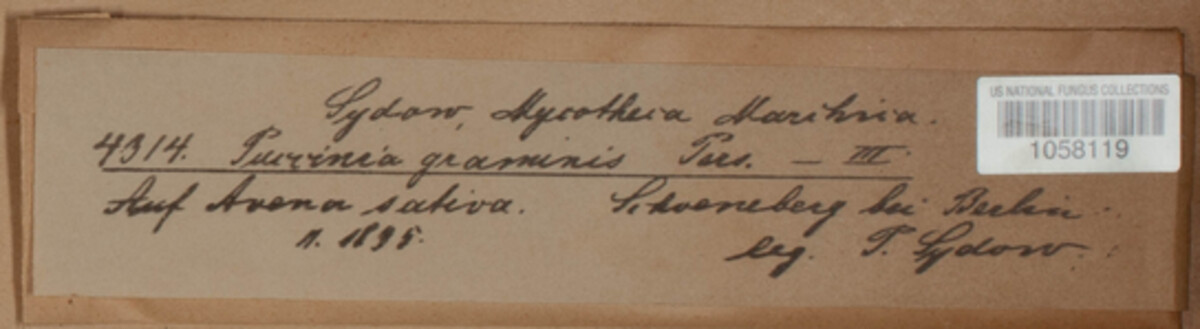 Sydow, Mycotheca Marchica.
4314. Puccinia graminis Pers. — III.
Auf Avena sativa. Schoeneberg bei Berlin.
1895.
leg. P. Sydow.
US NATIONAL FUNGUS COLLECTIONS
1058119